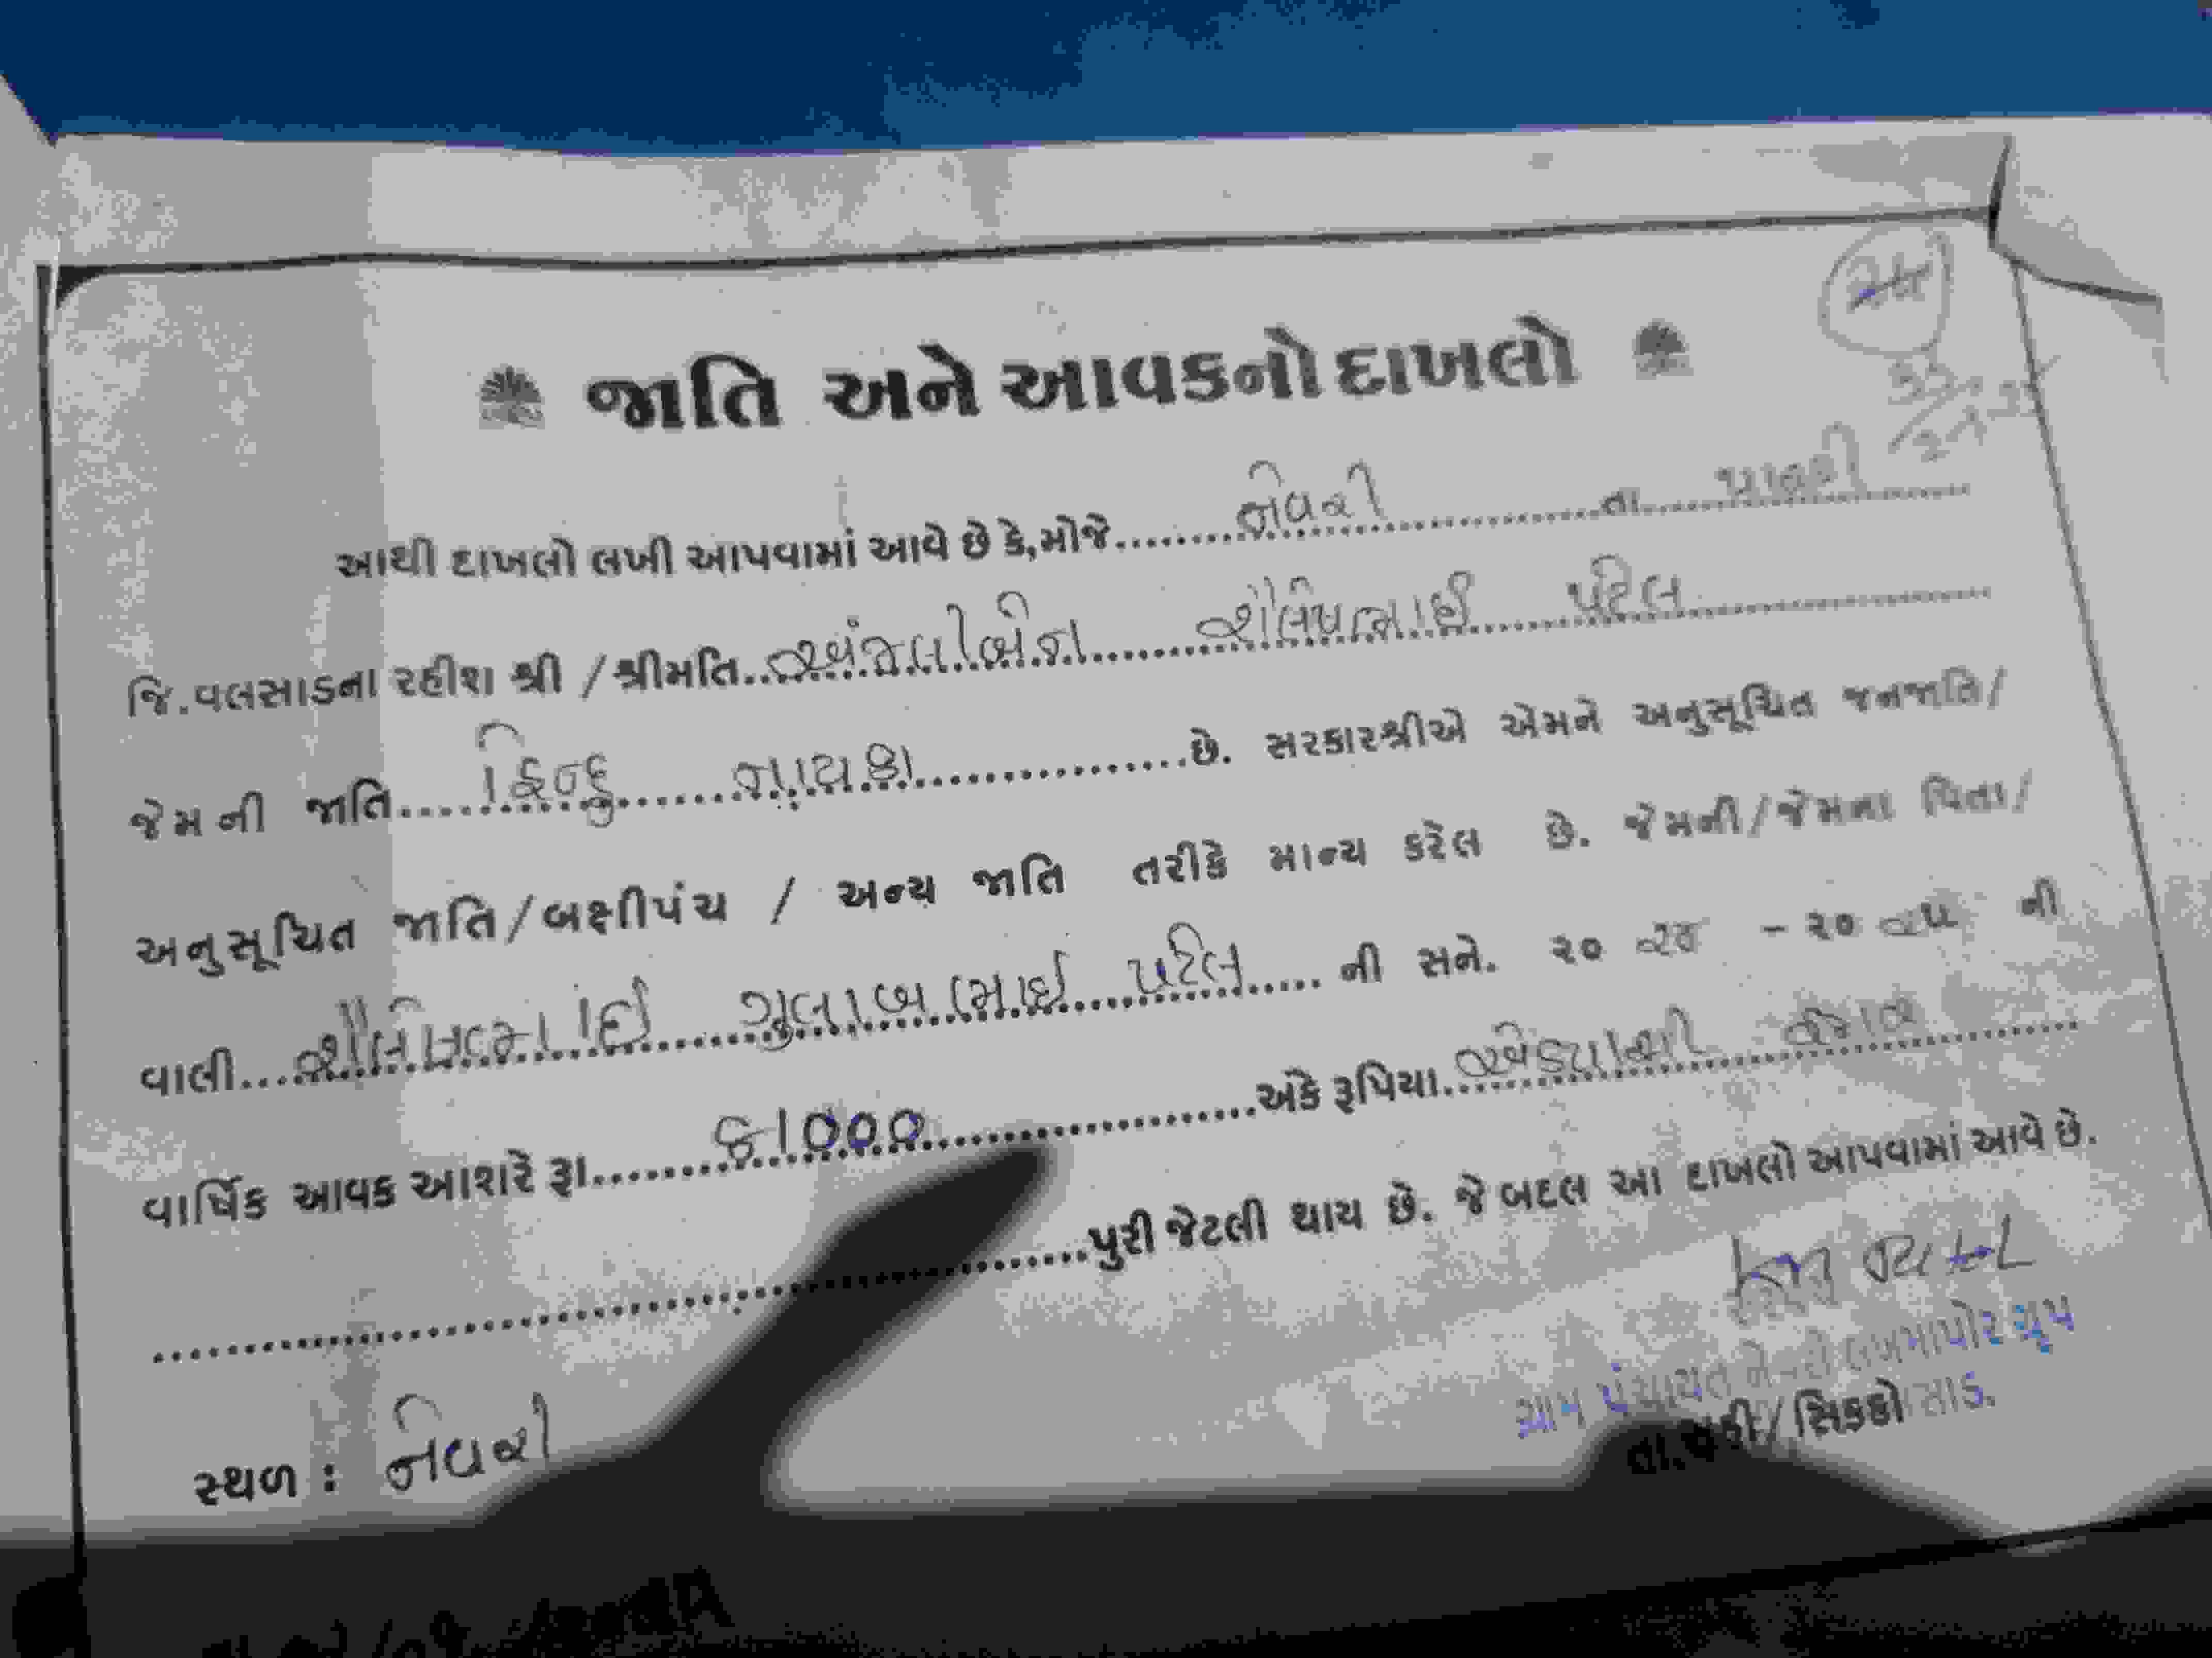 જાતિ અને આવકનો દાખલો
આથી દાખલો લખી આપવામાં આવે છે કે,મોજે.......નેવરી.......તા.......પારડી
જિ.વલસાડના રહીશ શ્રી /શ્રીમતિ..અંજલીબેન.......શૈલેષભાઈ પટેલ.......
જેમની જાતિ....હિન્દુ નાયકા.......છે. સરકારશ્રીએ એમને અનુસૂચિત જનજાતિ/
અનુસૂચિત જાતિ/બક્ષીપંચ / અન્ય જાતિ તરીકે માન્ય કરેલ છે. જેમની/જેમના પિતા/
વાલી....શૈલેષભાઈ ગુલાબભાઈ પટેલ.......ની સને. ૨૦ ૨૪ - ૨૦ ૨૫ ની
વાર્ષિક આવક આશરે રૂા.......૮૧૦૦૦.......અંકે રૂપિયા.......એક્યાશી હજાર.......
.......પુરી જેટલી થાય છે. જે બદલ આ દાખલો આપવામાં આવે છે.
ગ્રામ પંચાયત લખમાપોર ગ્રૂપ
સ્થળ : નેવરી
સિક્કો